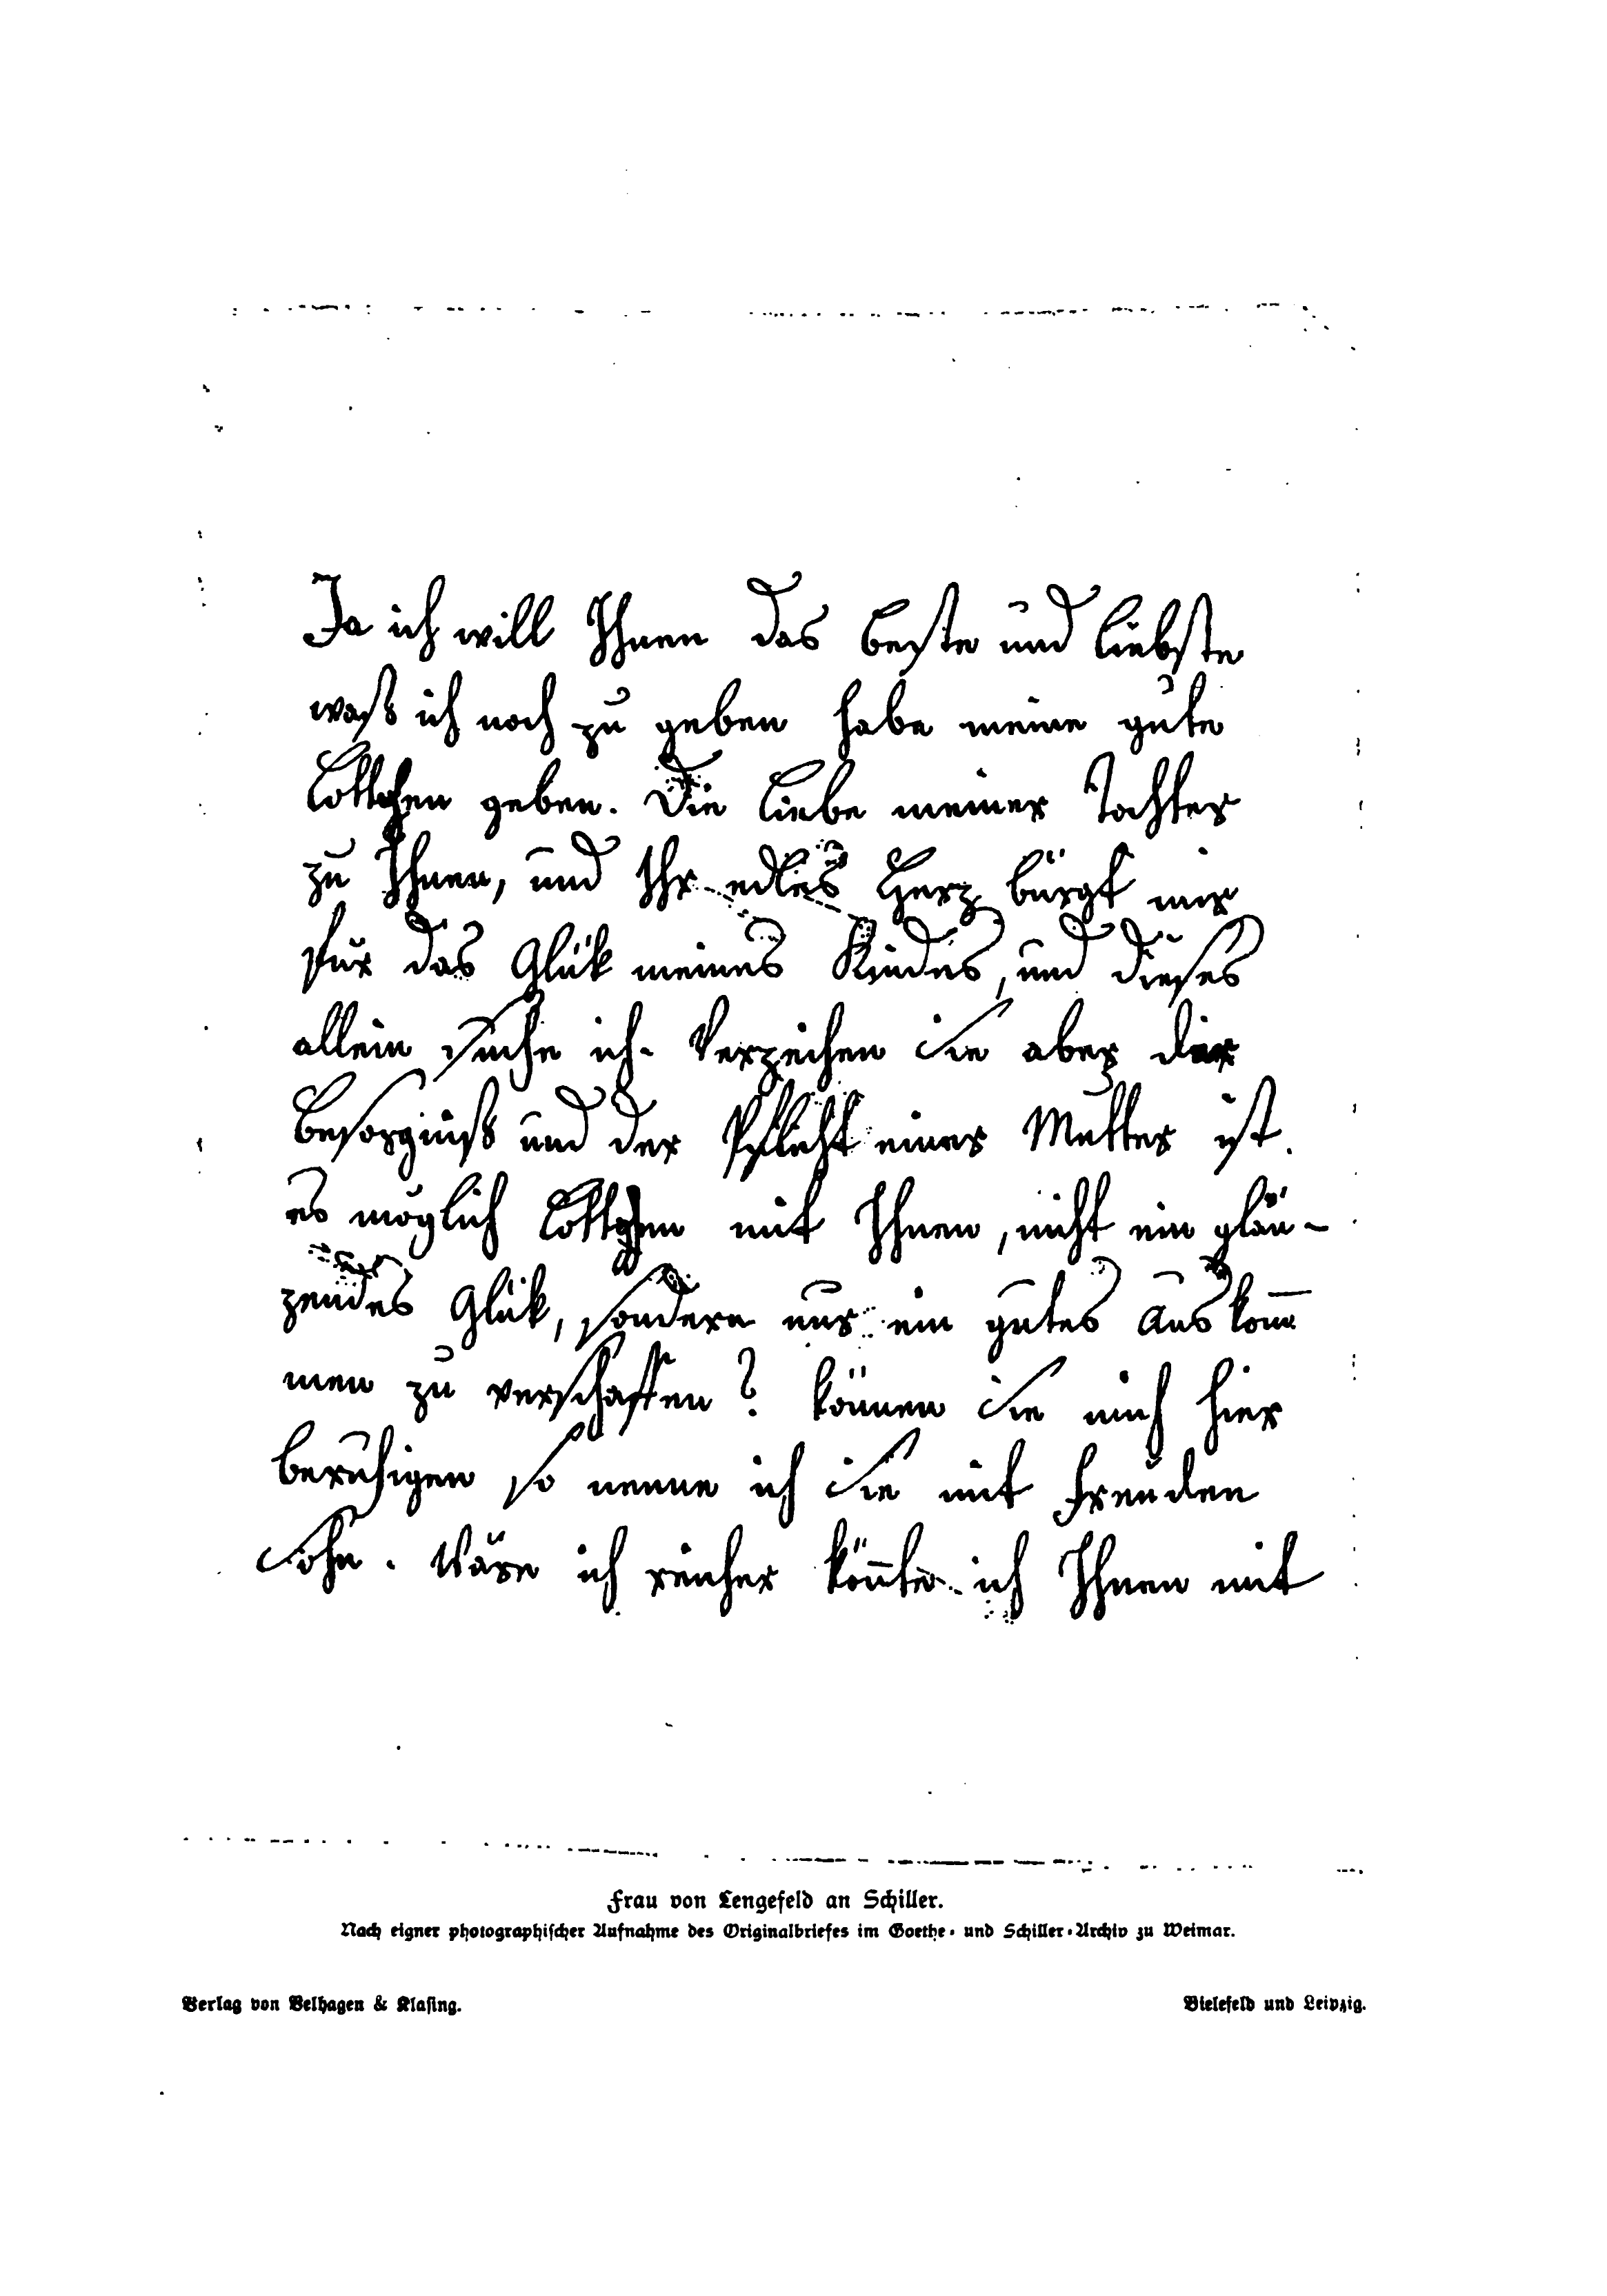 Ja ich will Ihnen das beste und liebste
waß ich noch zu geben habe meine gute
Lottchen geben. Die Liebe meiner Tochter
zu Ihnen, und Ihr edles Herz bürgt mir
für das Glük meines Kindes, und dieses
allein suche ich. Verzeihen Sie aber der
Besorgniß und der Pflicht einer Mutter ist.
es möglich Lottchen mit Ihnen, nicht ein glän-
zendes Glük, sondern nur ein gutes Auskom̅
men zu verschaffen? können Sie mich hier
beruhigen so nenne ich Sie mit Freuden
Sohn. Wäre ich reicher kön̅te ich Ihnen mit
Frau von Lengefeld an Schiller.
Nach eigner photographischer Aufnahme des Originalbriefes im Goethe- und Schiller-Archiv zu Weimar.
Verlag von Velhagen & Klasing.
Bielefeld und Leipzig.